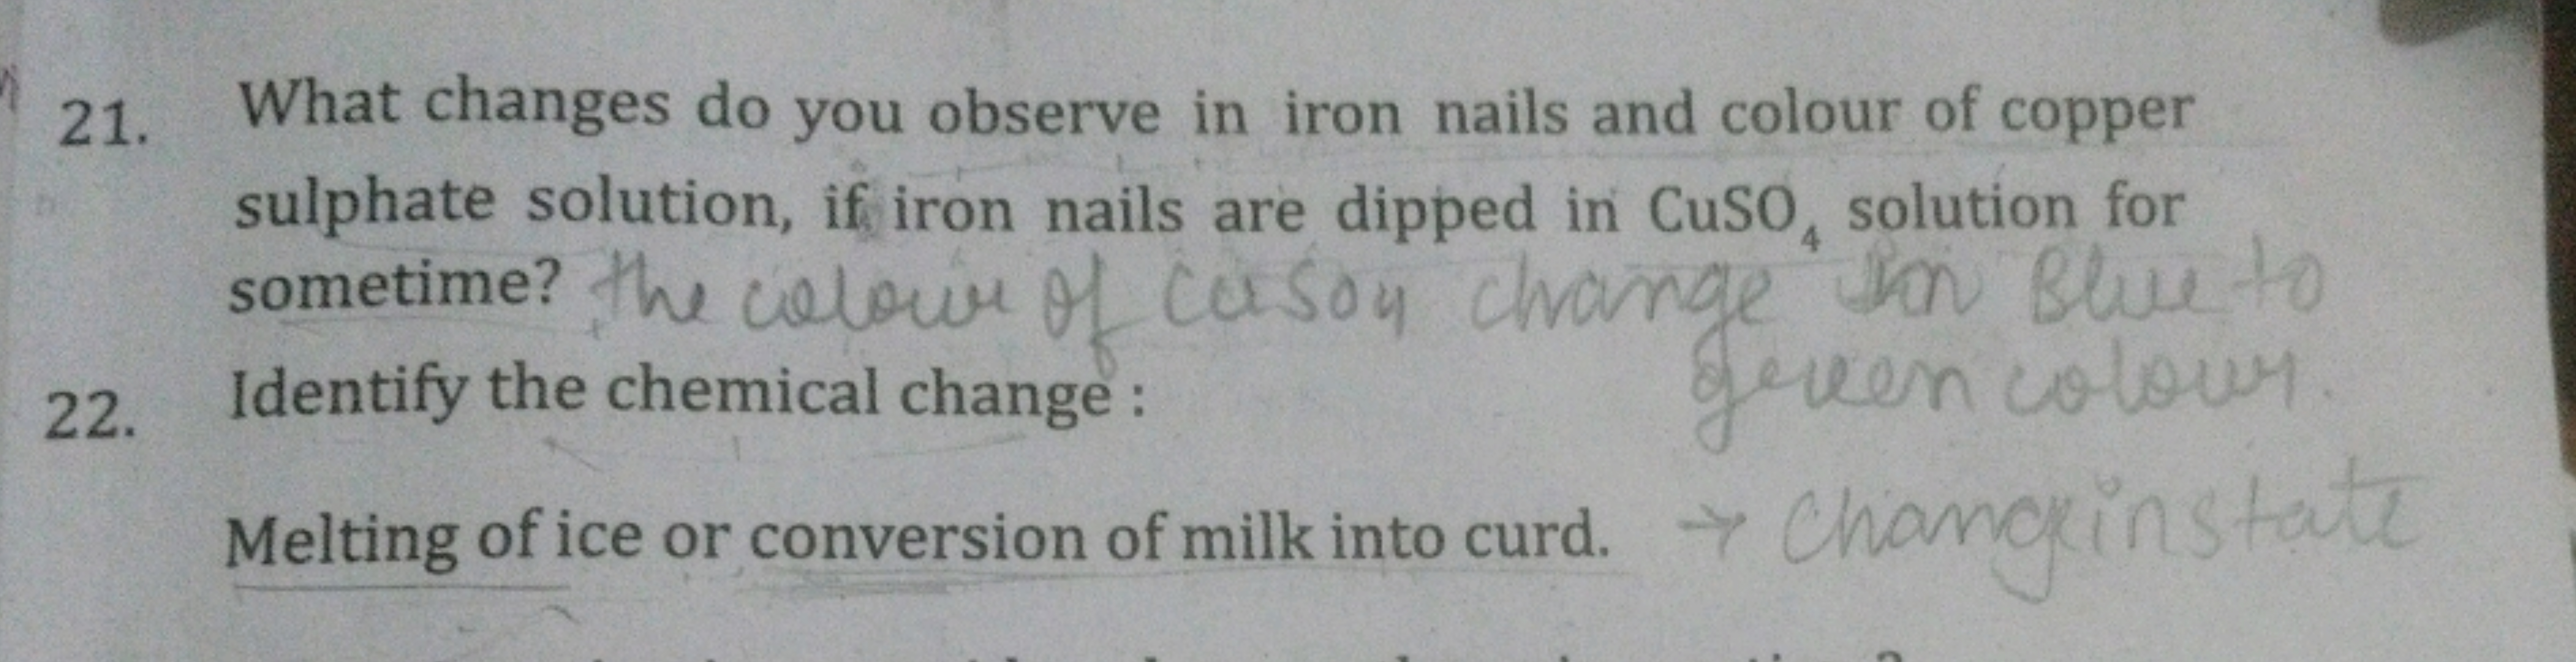 21. What changes do you observe in iron nails and colour of copper
sulphate solution, if iron nails are dipped in CuSO₄ solution for
sometime? the colour of Cuso4 change in Blue to
green colour.
22. Identify the chemical change :
Melting of ice or conversion of milk into curd. → Change in state